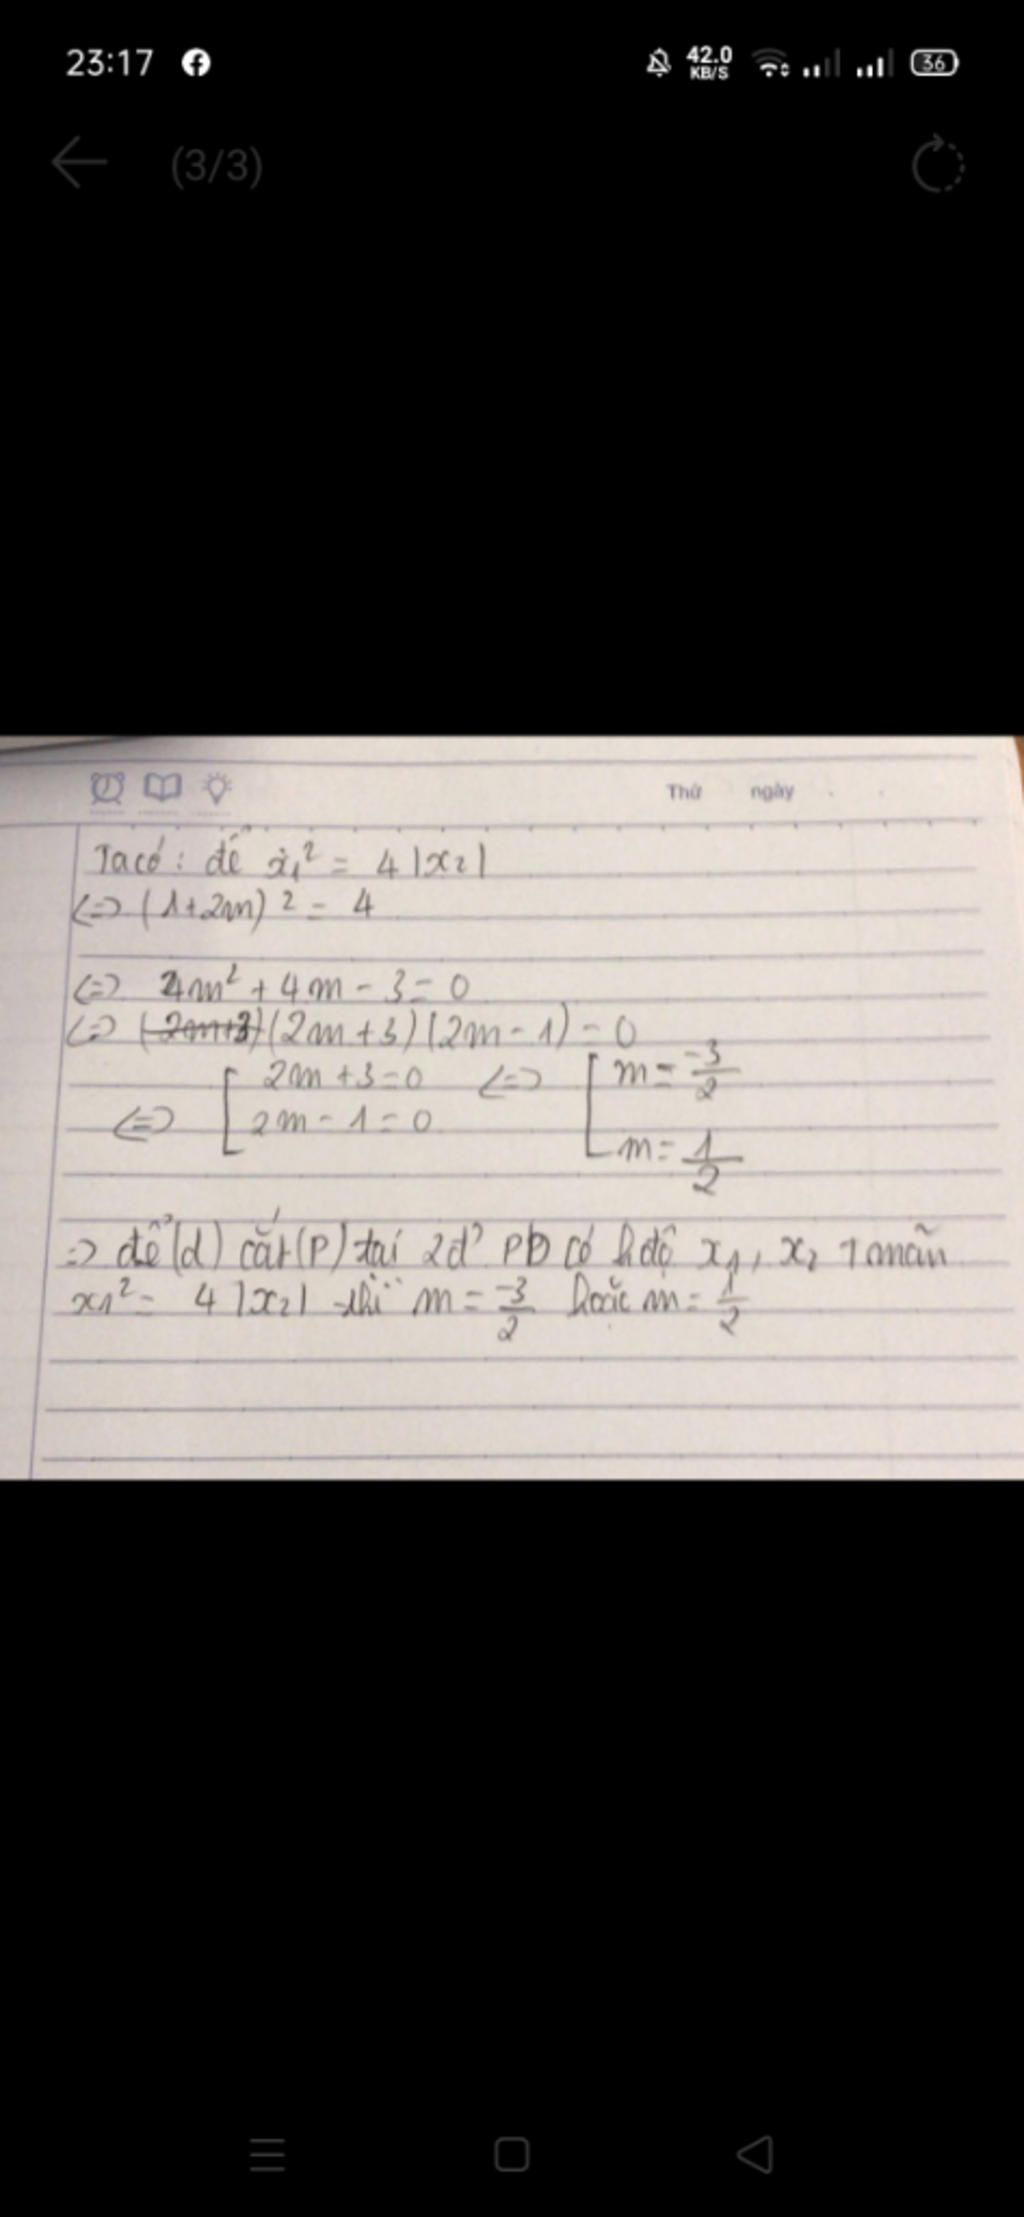 23:17
42.0 KB/S
36
(3/3)
Thứ ngày
Ta có: để x₁² = 4|x₂|
<=> (1+2m)² = 4
<=> 4m² + 4m - 3 = 0
<=> (2m+3)(2m+3)(2m-1) = 0
2m+3=0 <=> m = -3/2
<=> 2m-1=0
m = 1/2
=> để (d) cắt (P) tại 2đ' pb có h.độ x₁, x₂ t mãn
x₁² = 4|x₂| thì m = -3/2 hoặc m = 1/2